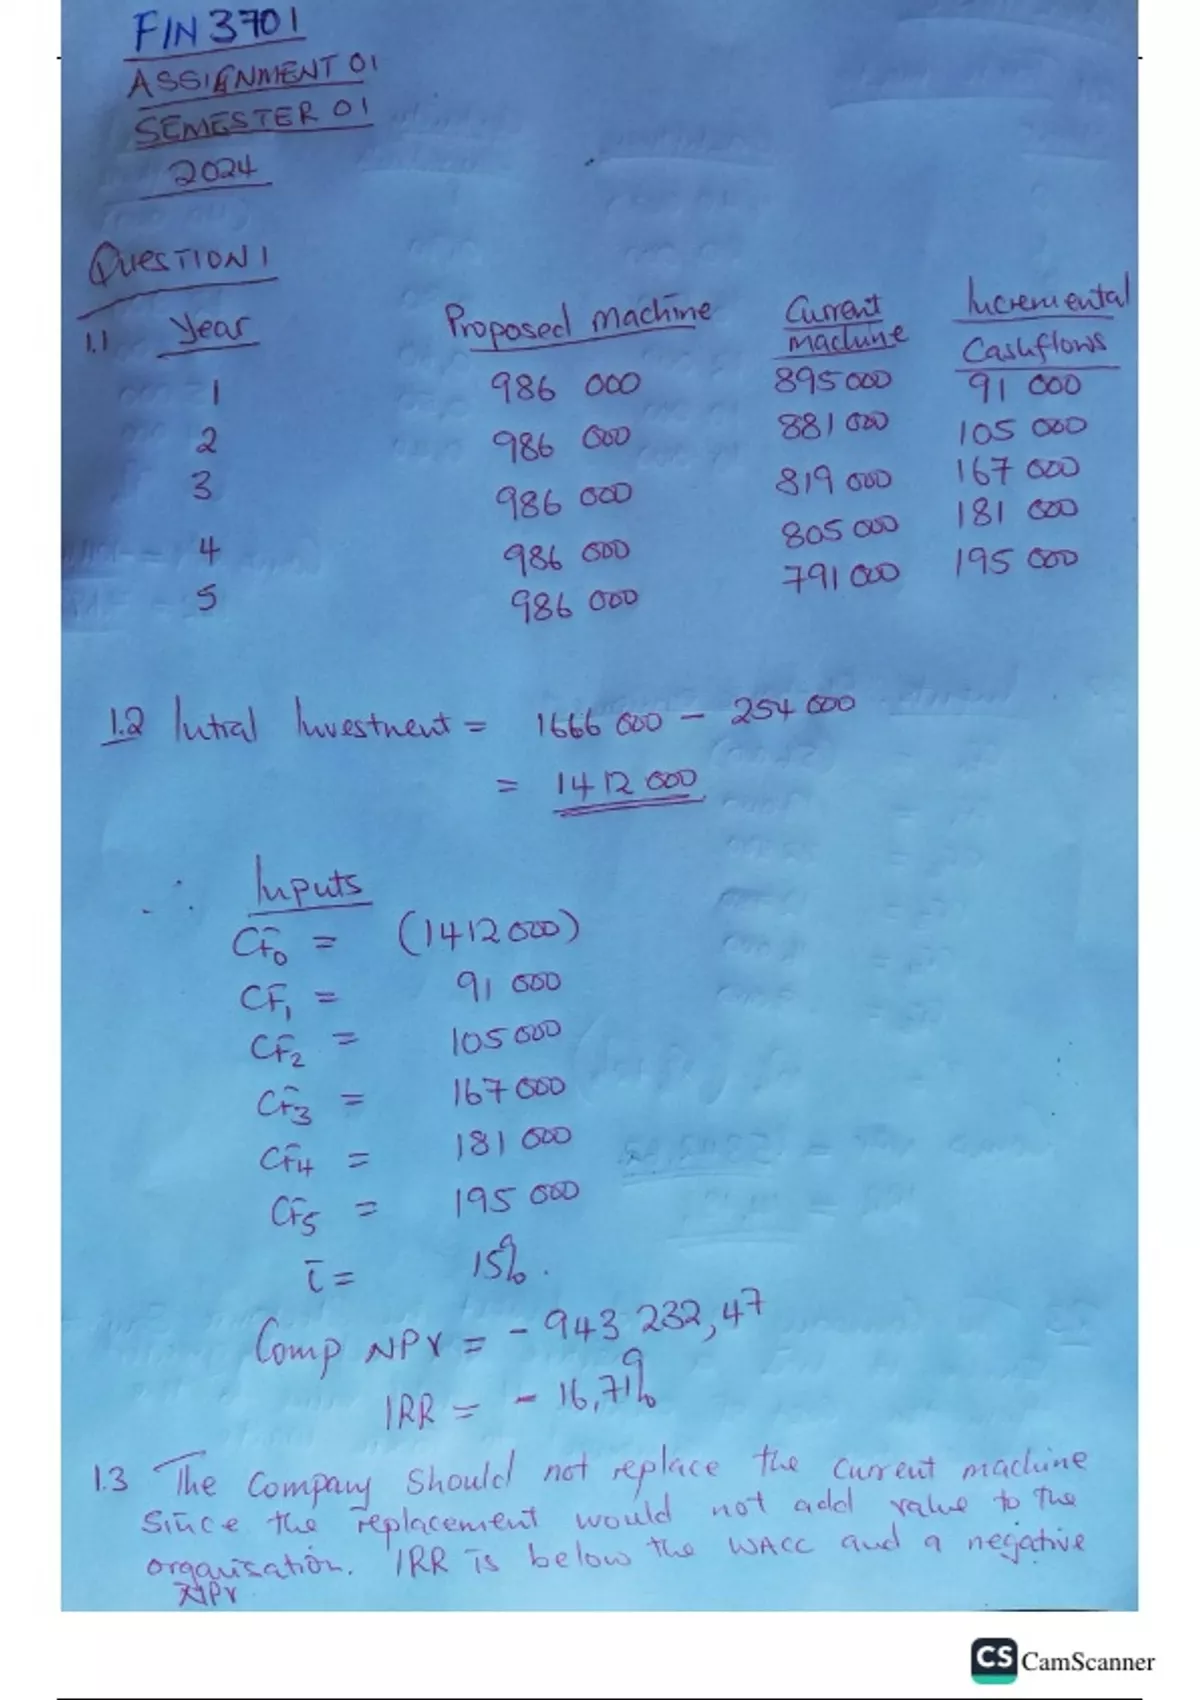 FIN 3701
ASSIGNMENT 01
SEMESTER 01
2024
QUESTION 1
1.1 Year Proposed machine Current machine Incremental Cashflows
1 986 000 895 000 91 000
2 986 000 881 000 105 000
3 986 000 819 000 167 000
4 986 000 805 000 181 000
5 986 000 791 000 195 000
1.2 Initial Investment = 1666 000 - 254 000
= 1412 000
∴ Inputs
CF0 = (1412 000)
CF1 = 91 000
CF2 = 105 000
CF3 = 167 000
CF4 = 181 000
CF5 = 195 000
i = 15%.
Comp NPV = - 943 232,47
IRR = - 16,71%
1.3 The Company Should not replace the current machine
Since the replacement would not add value to the
organisation. IRR is below the WACC and a negative
NPV
CS CamScanner